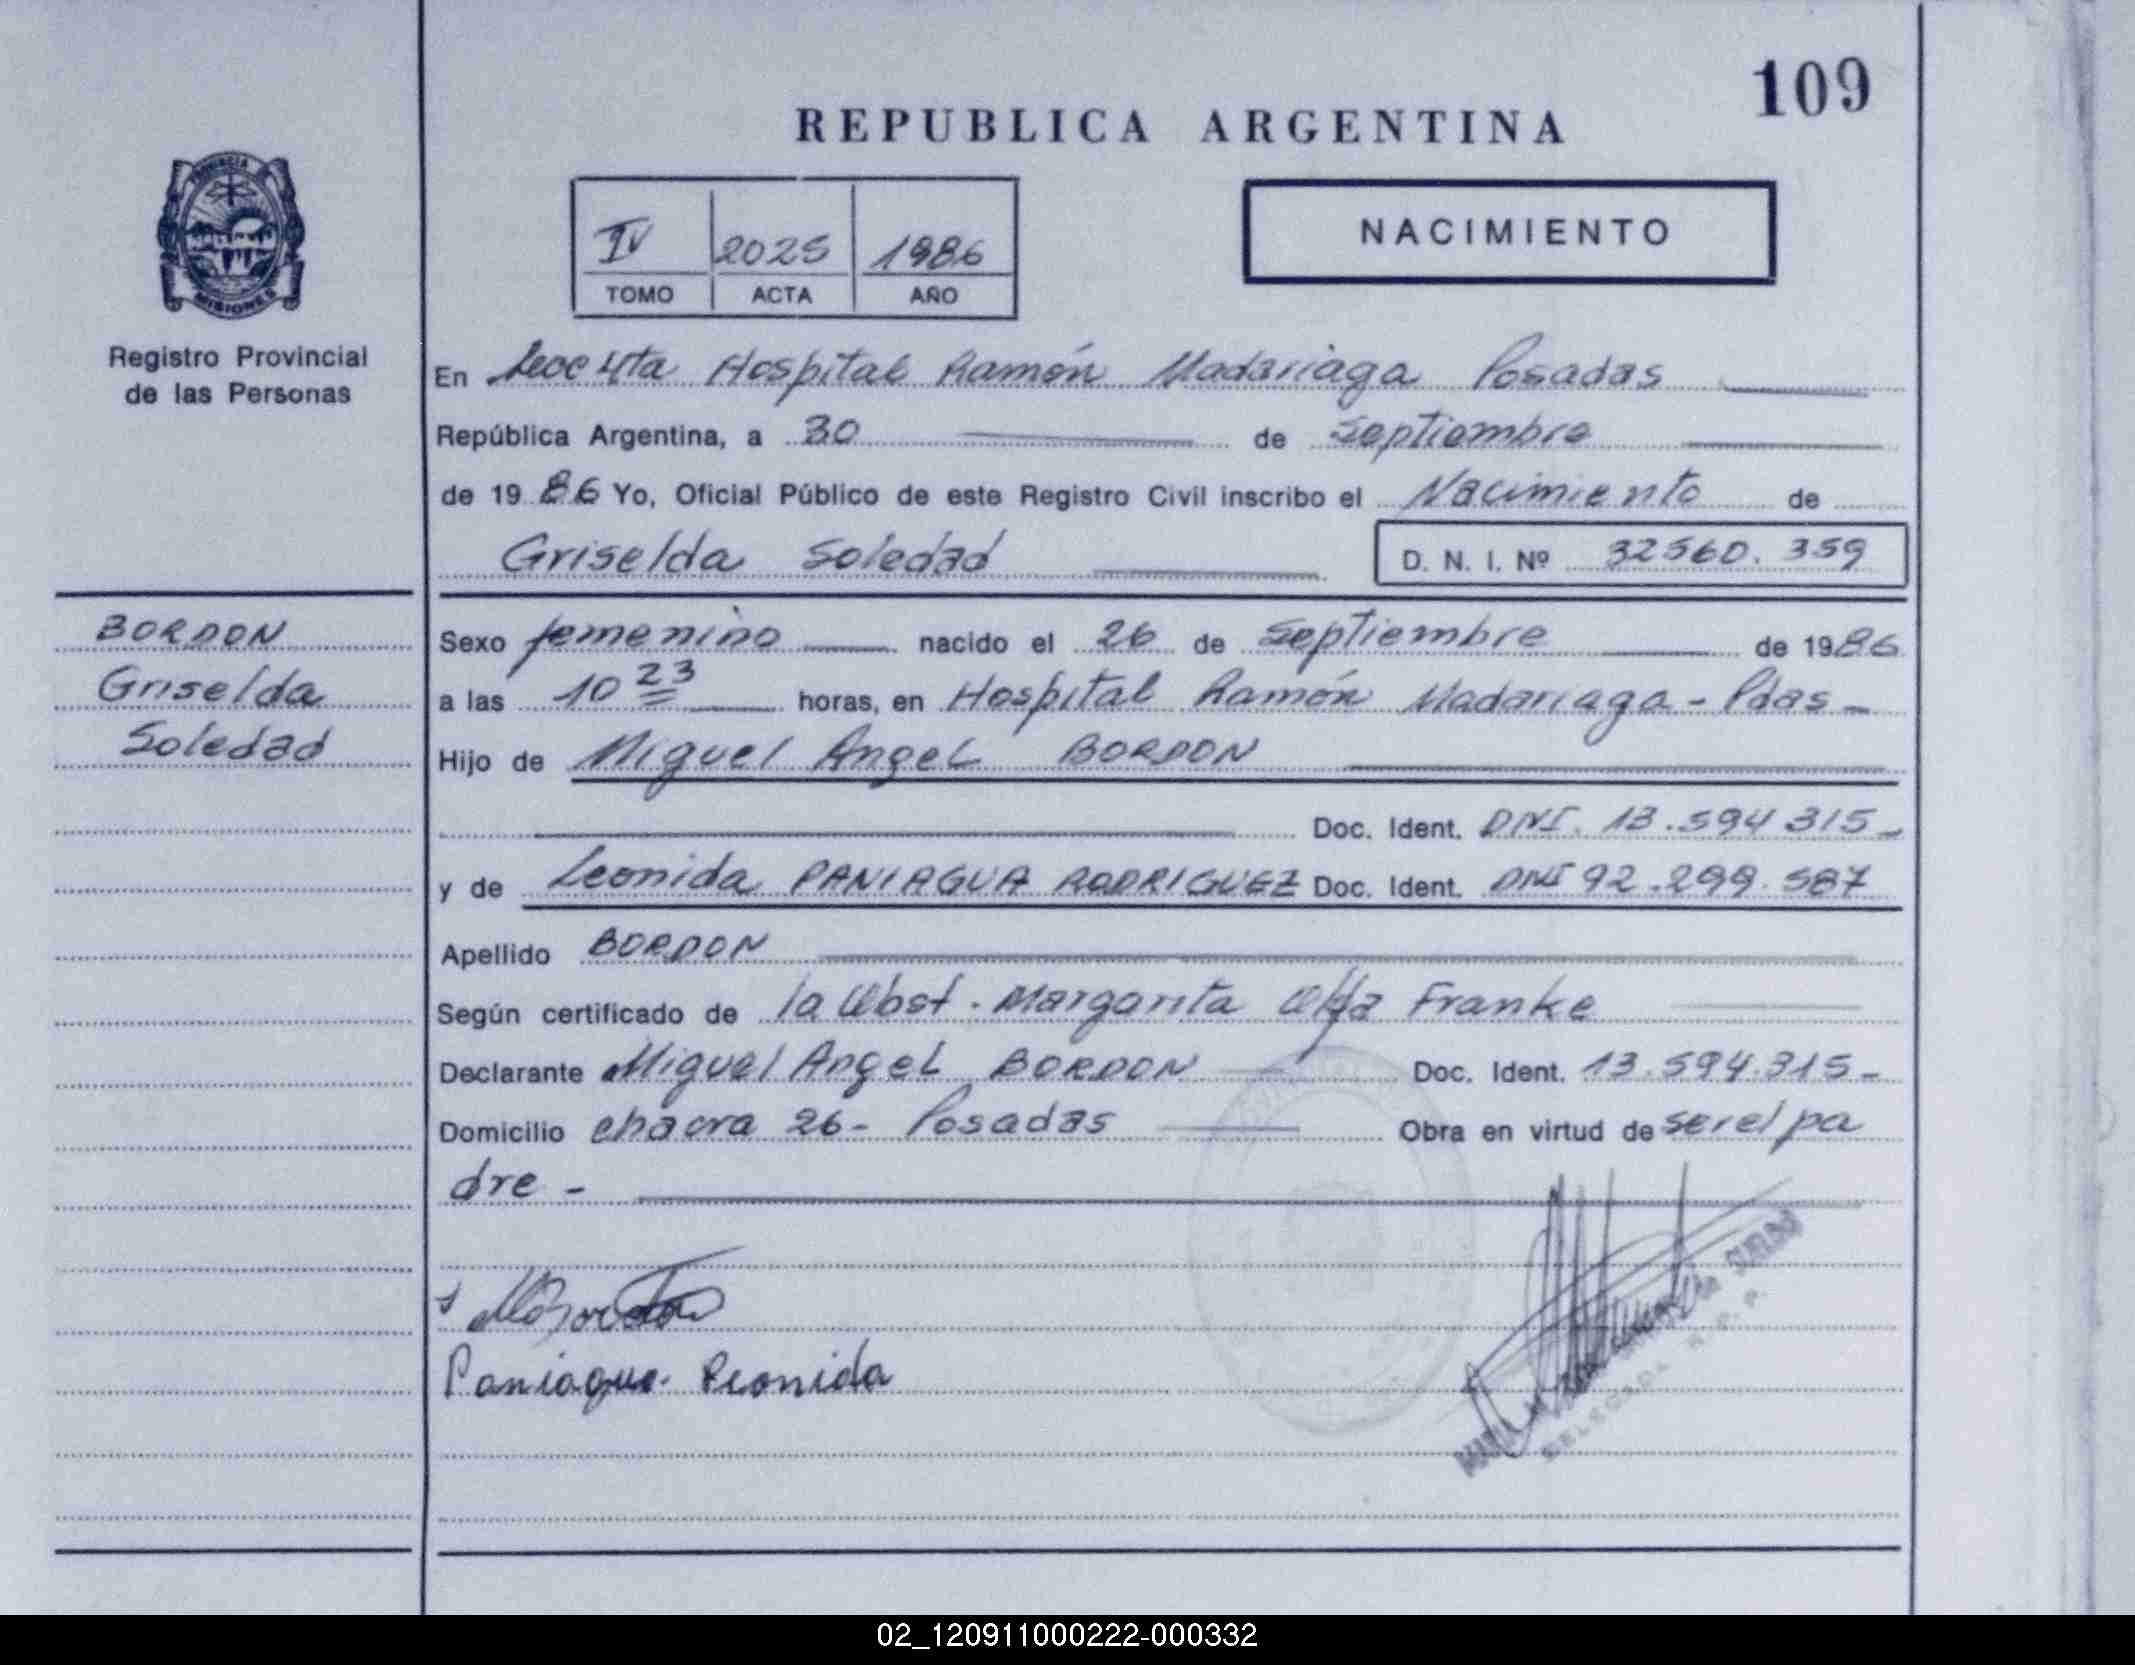 109
REPUBLICA ARGENTINA
PROVINCIA DE
MISIONES
Registro Provincial
de las Personas
IV 2025 1986
TOMO ACTA AÑO
NACIMIENTO
En Secc 4ta Hospital Ramón Madariaga Posadas
República Argentina, a 30 de Septiembre
de 1986 Yo, Oficial Público de este Registro Civil inscribo el Nacimiento de
Griselda Soledad
D. N. I. Nº 32560.359
BORDON
Griselda
Soledad
Sexo femenino nacido el 26 de Septiembre de 1986
a las 10 23 horas, en Hospital Ramón Madariaga - Pdas -
Hijo de Miguel Angel BORDON
Doc. Ident. DNI. 13.594 315 -
y de Leonida PANIAGUA RODRIGUEZ Doc. Ident. DNI 92.299.587
Apellido BORDON
Según certificado de la Obst. Margarita Olga Franke
Declarante Miguel Angel BORDON Doc. Ident. 13.594.315 -
Domicilio chacra 26 - Posadas Obra en virtud de ser el pa
dre -
Paniagua Leonida
R. P. P.
02_120911000222-000332